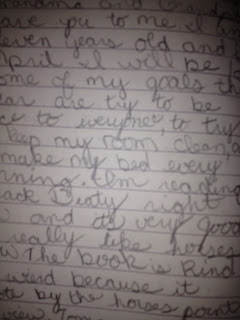 are you to me I
even years old and
April I will be
ome of my goals th
ar are try to be
ce to everyone, to try
keep my room clean, a
make my bed every
rning. I'm reading
ack Beuty right
w and it's very good
really like horses
w The book is kind
wierd because it
te by the horses point